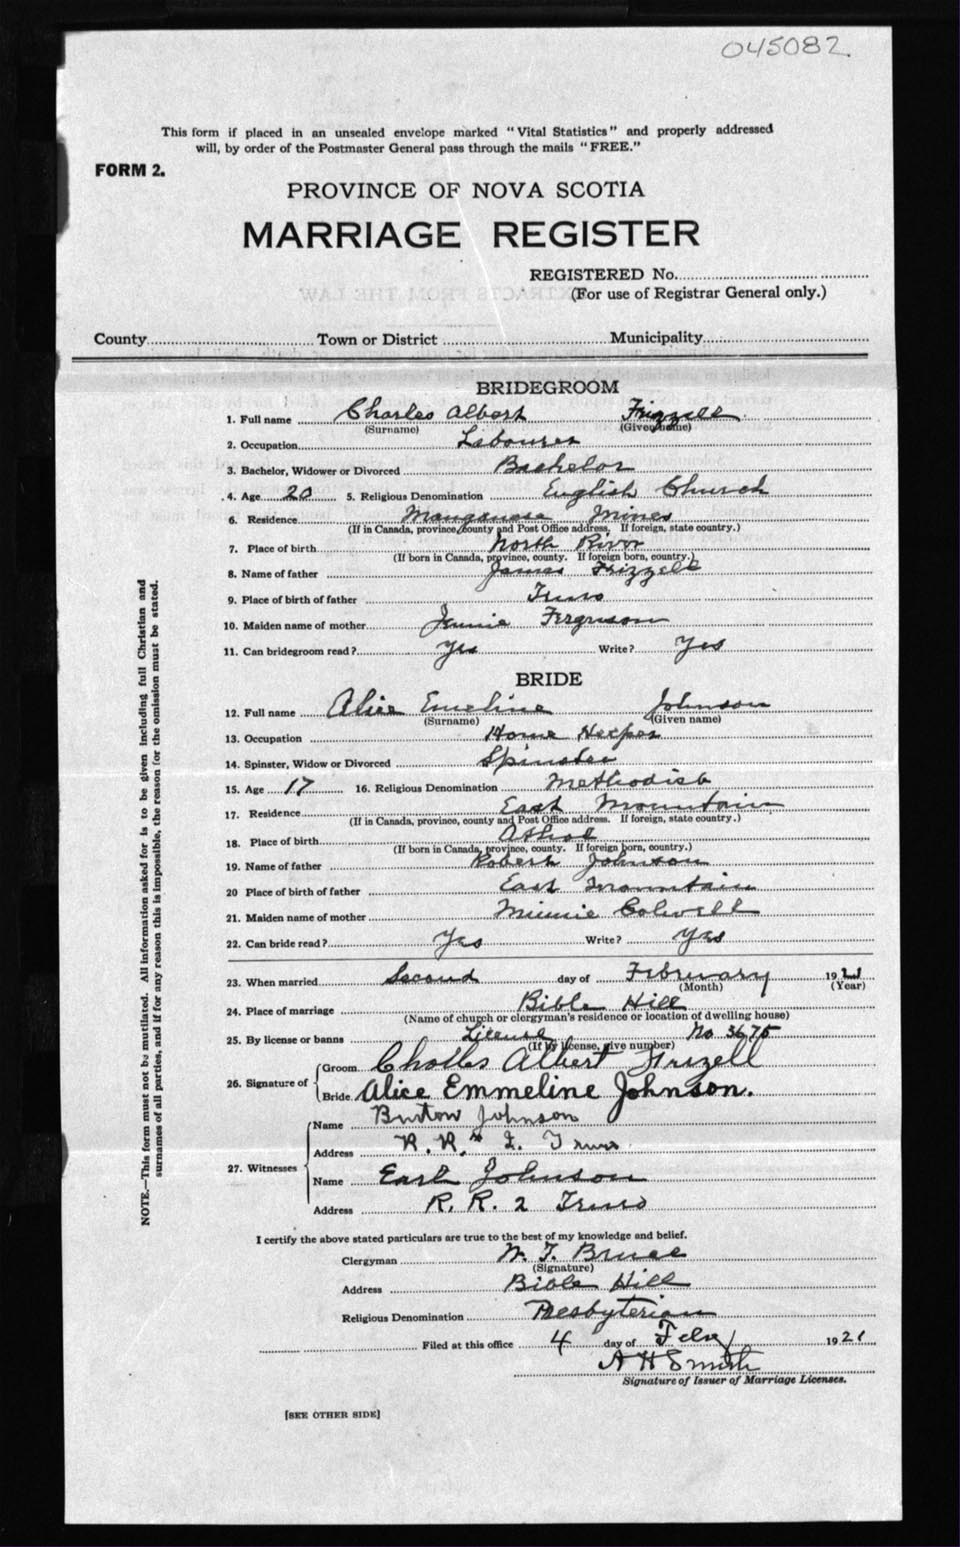 045082
This form if placed in an unsealed envelope marked "Vital Statistics" and properly addressed
will, by order of the Postmaster General pass through the mails "FREE."
FORM 2.
PROVINCE OF NOVA SCOTIA
MARRIAGE REGISTER
REGISTERED No.
(For use of Registrar General only.)
County Town or District Municipality
BRIDEGROOM
1. Full name Charles Albert Frizzell
(Surname) (Given name)
2. Occupation Labourer
3. Bachelor, Widower or Divorced Bachelor
4. Age 20 5. Religious Denomination English Church
6. Residence Manganese Mines
(If in Canada, province, county and Post Office address. If foreign, state country.)
7. Place of birth North River
(If born in Canada, province, county. If foreign born, country.)
8. Name of father James Frizzell
9. Place of birth of father Truro
10. Maiden name of mother Jennie Ferguson
11. Can bridegroom read? Yes Write? Yes
BRIDE
12. Full name Alice Emeline Johnson
(Surname) (Given name)
13. Occupation Home Helper
14. Spinster, Widow or Divorced Spinster
15. Age 17 16. Religious Denomination Methodist
17. Residence East Mountain
(If in Canada, province, county and Post Office address. If foreign, state country.)
18. Place of birth Athol
(If born in Canada, province, county. If foreign born, country.)
19. Name of father Robert Johnson
20 Place of birth of father East Mountain
21. Maiden name of mother Minnie Colwell
22. Can bride read? Yes Write? Yes
23. When married Second day of February 1921
(Month) (Year)
24. Place of marriage Bible Hill
(Name of church or clergyman's residence or location of dwelling house)
25. By license or banns License No. 3675
(If by license, give number)
26. Signature of Groom Cholles Albert Frizell
Bride Alice Emmeline Johnson.
27. Witnesses Name Burton Johnson
Address R. R. # 2. Truro
Name Earl Johnson
Address R. R. 2 Truro
I certify the above stated particulars are true to the best of my knowledge and belief.
Clergyman W. T. Bruce
(Signature)
Address Bible Hill
Religious Denomination Presbyterian
Filed at this office 4 day of Feby 1921
A H Smith
Signature of Issuer of Marriage Licenses.
[SEE OTHER SIDE]
NOTE.—This form must not be mutilated. All information asked for is to be given including full Christian and
surnames of all parties, and if for any reason this is impossible, the reason for the omission must be stated.